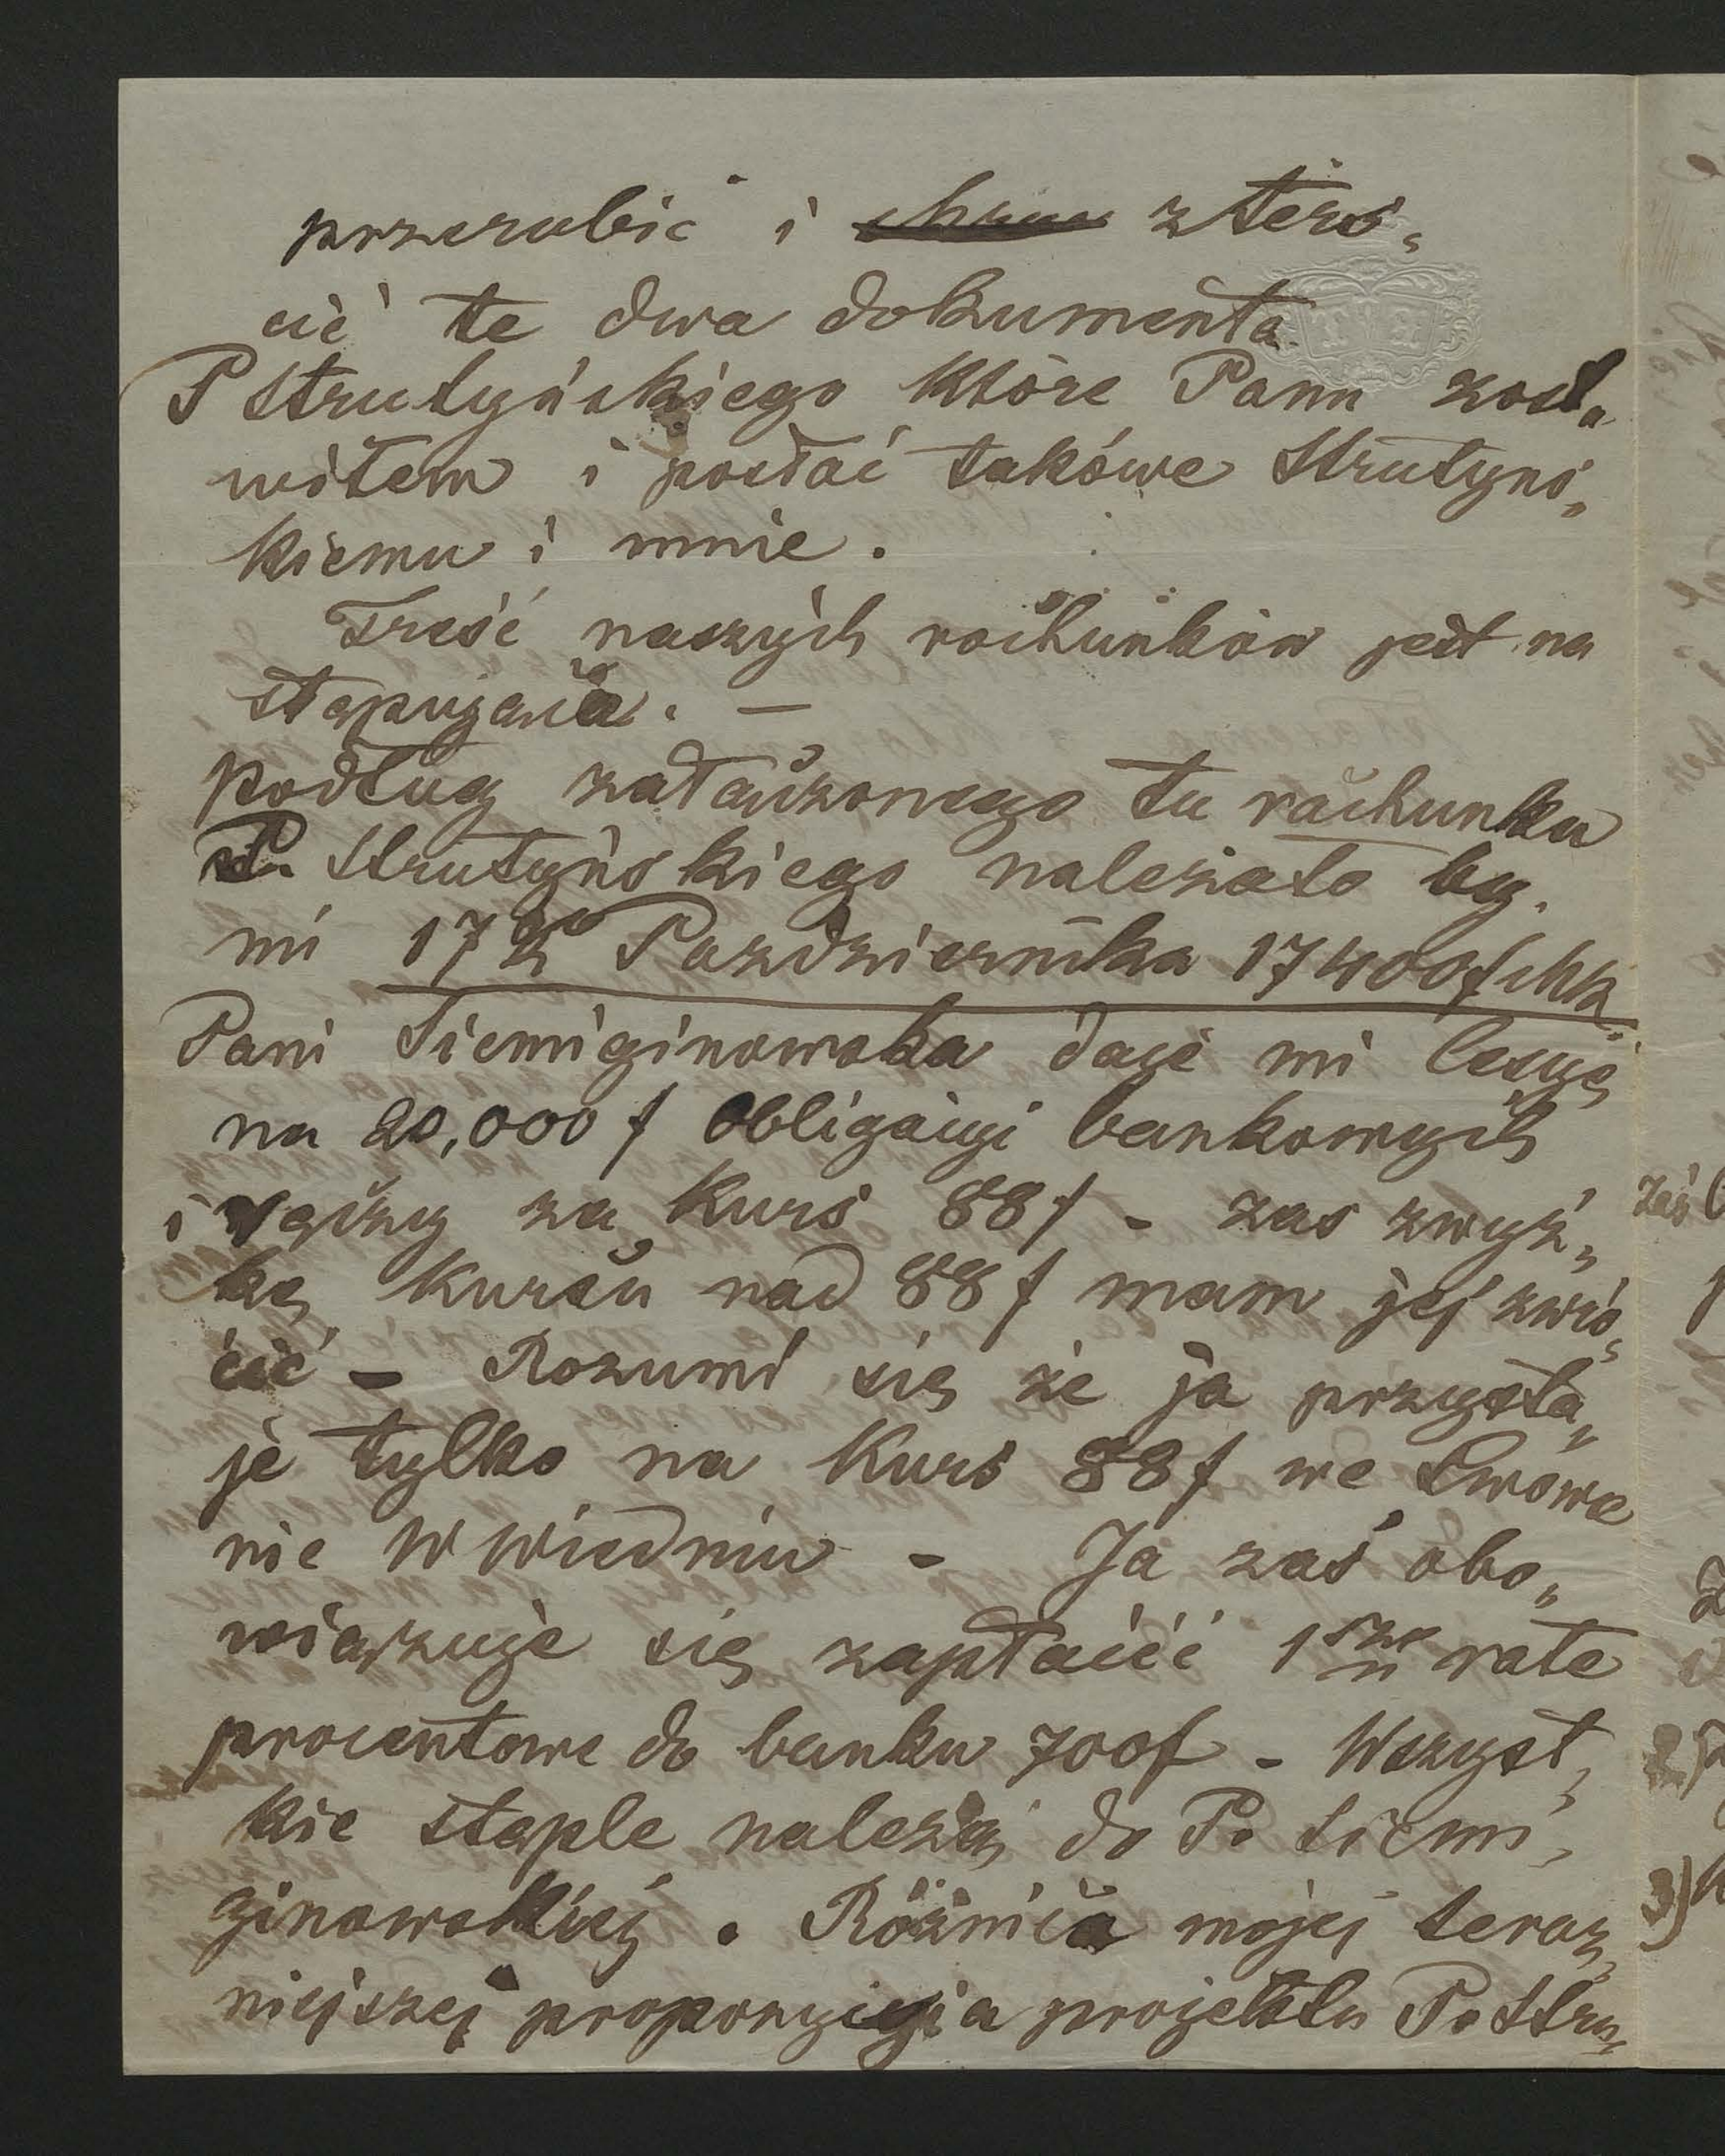 przerobić i zterś„
cić te dwa dokumenta
P Strutyńskiego które Panu zosta„
wiłem i posłać takówe Strutyńs„
kiemu i mnie.
Treść naszych rachunków jest na
stępująca. —
podług załączonego tu rachunku
P. Strutyńskiego należało by
mi 17go Pazdziernika 17400f Mk.
Pani Siemiginowska daje mi Cesyę
na 20,000 f Obligacyi bankowych
i ręczy za kurs 88f - zas zwyż„
kę kursu nad 88 f mam jej zwró„
cić - Rozumi się że ja przysta„
je tylko na kurs 88f we Lwowie
nie w Wiedniu - Ja zaś obo„
wiązuje się zapłacić 1szą rate
procentowe do banku 700f - Wszyst„
kie stęple należą do P. Siemi„
ginowskiej. Różnica mojej teraz„
niejszej propozycyi a projektu P. Stru„
zaś
2)
3)